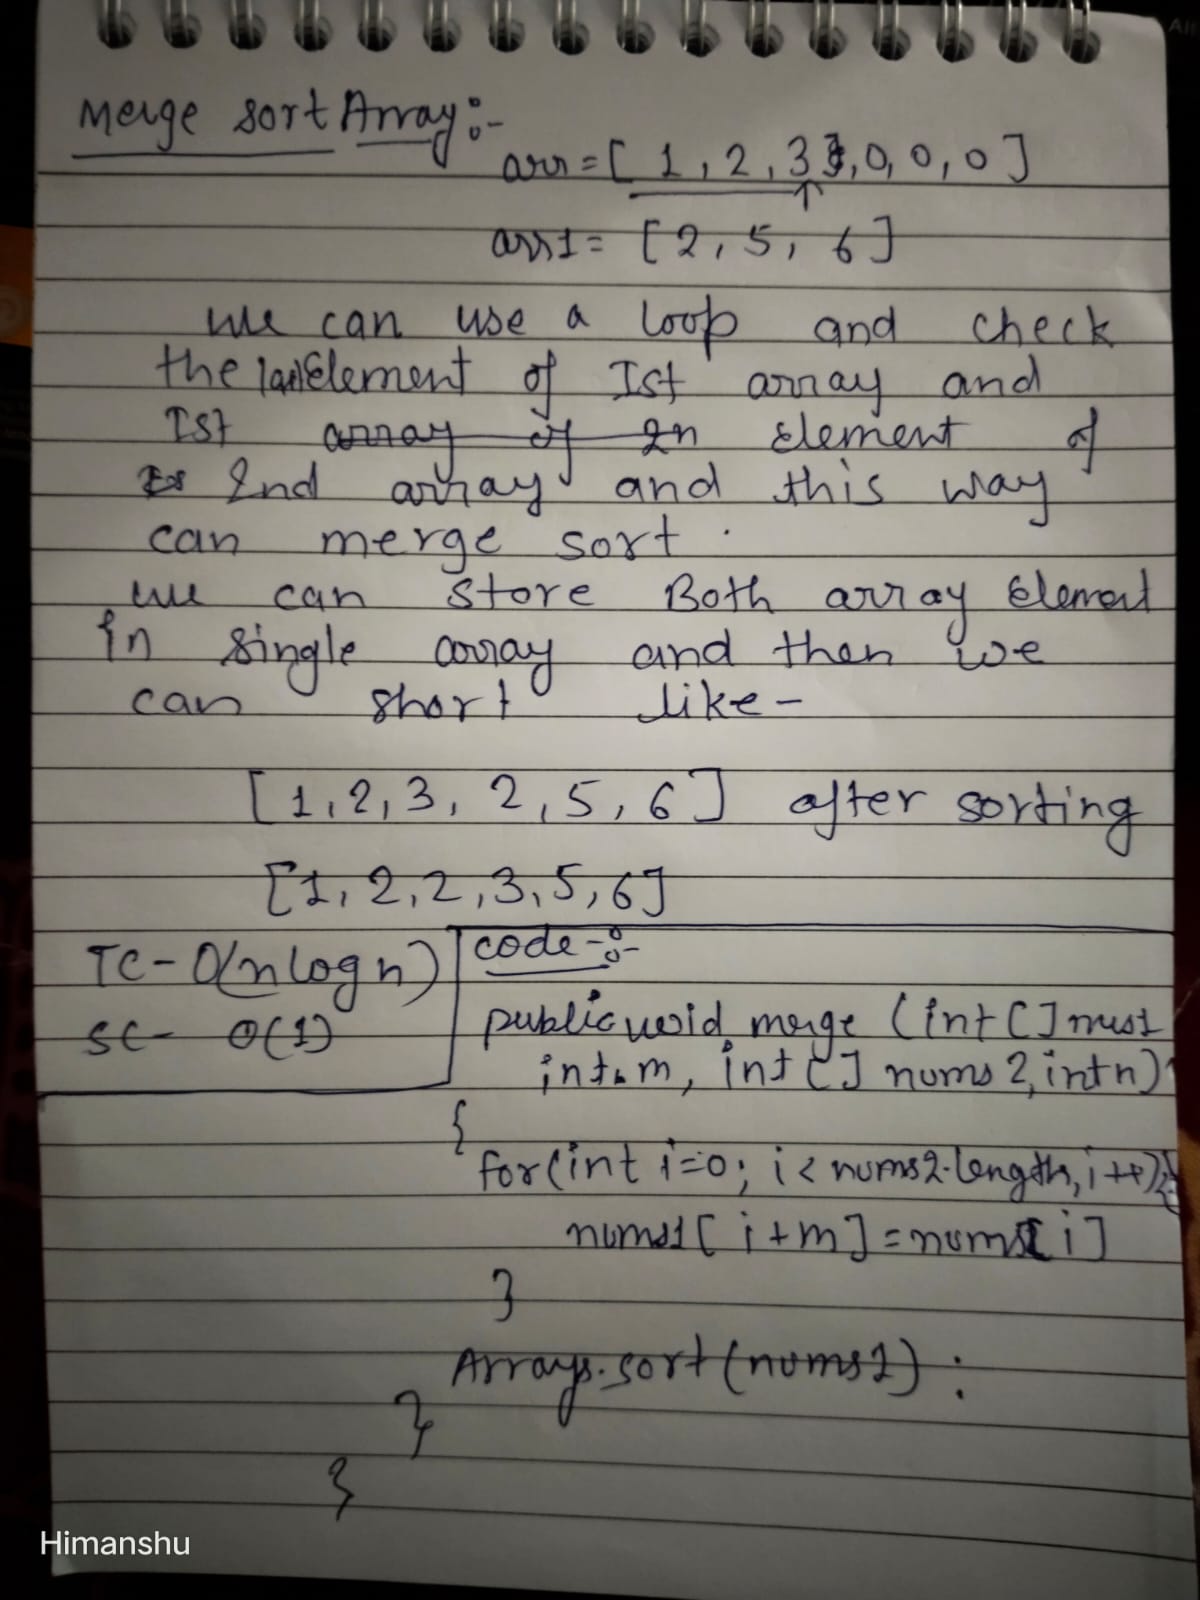 Merge sort Array:-
arr = [ 1, 2, 3, 0, 0, 0 ]
arr1 = [ 2, 5, 6 ]
we can use a loop and check
the last Element of Ist array and
Ist array of 2n Element of
2nd array and this way
can merge sort.
we can store Both array Element
in single array and then we
can short like -
[ 1, 2, 3, 2, 5, 6 ] after sorting
[ 1, 2, 2, 3, 5, 6 ]
TC - O(n log n)
SC - O(1)
code -:-
public void merge ( int [ ] nums1
int m, int [ ] nums 2, int n)
{
for(int i=0; i < nums2.length, i++){
nums1 [ i + m ] = nums2[ i ]
}
Arrays.sort (nums1) ;
}
}
Himanshu